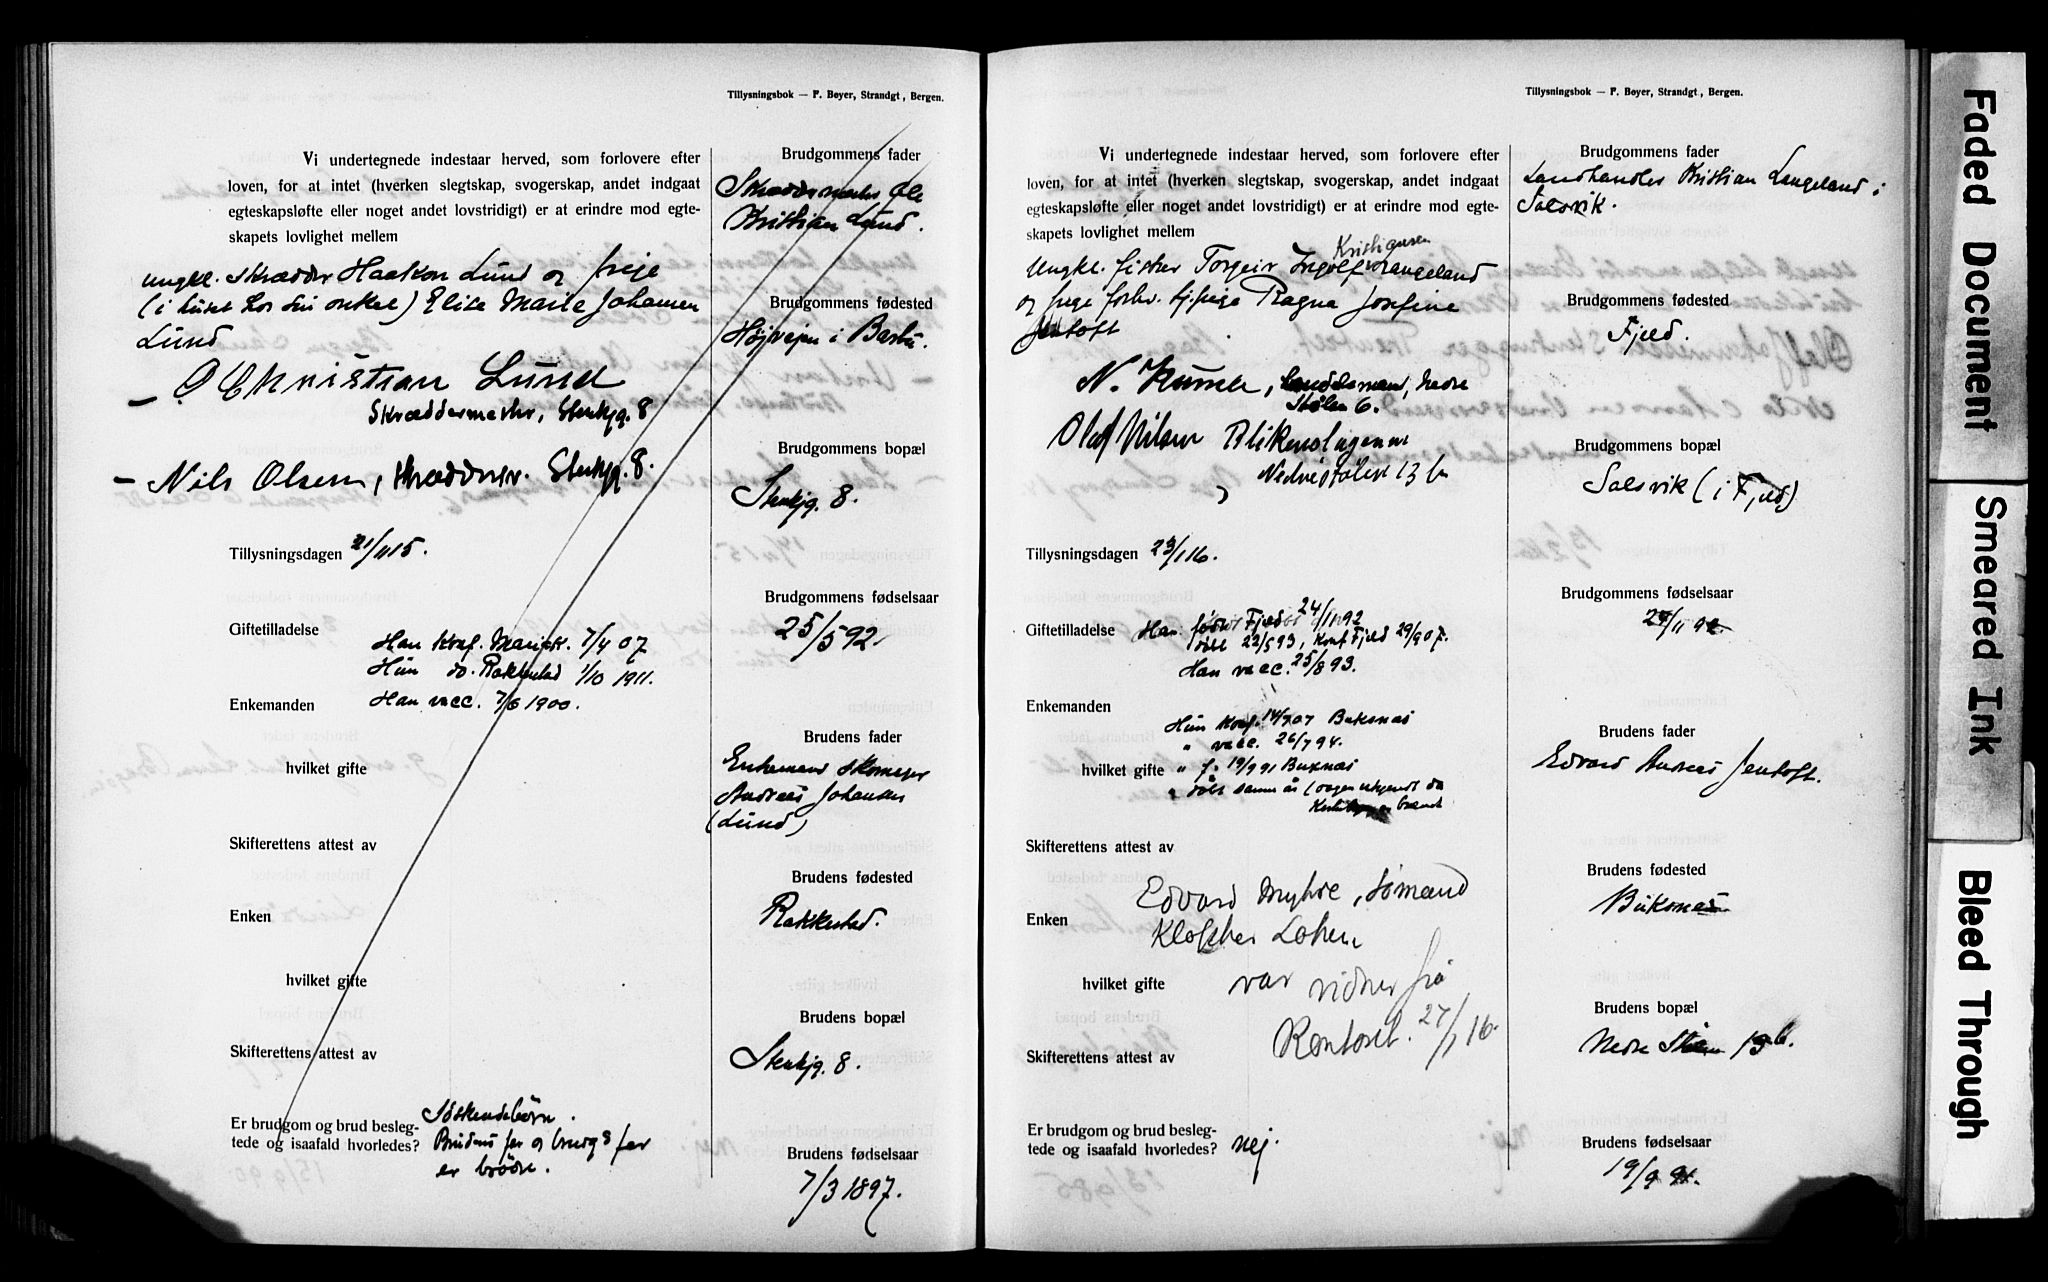 Tillysningsbok — F. Beyer, Strandgt, Bergen.
Vi undertegnede indestaar herved, som forlovere efter
loven, for at intet (hverken slegtskap, svogerskap, andet indgaat
egteskapsløfte eller noget andet lovstridigt) er at erindre mod egte-
skapets lovlighet mellem
ungkl. Skrædder Haakon Lund og frøje
(i huset hos sin onkel) Elise Marie Johansen
Lund
— O Christian Lund
Skræddermester, Stenkjg. 8
— Nils Olsen, skrædder. Stenkjg. 8.
Tillysningsdagen 21/11 15.
Giftetilladelse
Han konf. 7/4 07
Hun do. Rakkestad 1/10 1911.
Enkemanden
Han vacc. 7/6 1900.
hvilket gifte
Skifterettens attest av
Enken
hvilket gifte
Skifterettens attest av
Er brudgom og brud besleg-
tede og isaafald hvorledes?
Søskendebørn.
Brudens far og brudgs far
er brødre.
Brudgommens fader
Skræddermester Ole
Kristian Lund.
Brudgommens fødested
Højvejen i Barbu.
Brudgommens bopæl
Stenkjg. 8.
Brudgommens fødselsaar
25/5 92.
Brudens fader
Enkemand skomager
Andreas Johansen
(Lund)
Brudens fødested
Rakkestad.
Brudens bopæl
Stenkjg. 8.
Brudens fødselsaar
7/3 1897.
Tillysningsbok — F. Beyer, Strandgt, Bergen.
Vi undertegnede indestaar herved, som forlovere efter
loven, for at intet (hverken slegtskap, svogerskap, andet indgaat
egteskapsløfte eller noget andet lovstridigt) er at erindre mod egte-
skapets lovlighet mellem
Kristiansen
Ungkl. fisker Torgeir Ingolf Langeland
og pige forhv. tj.pige Ragna Josefine
Jentoft
N. Kumle, Nedre
Stølen 6.
Olaf Nilsen Blikenslagersv
Nedrestølen 13 b
Tillysningsdagen 23/1 16.
Giftetilladelse
Han født Fjeld 24/11 92
døbt 22/5 93, konf Fjeld 29/9 07.
Han vacc. 25/8 93.
Enkemanden
Hun konf. 14/7 07 Buksnæs
" vacc. 26/7 94.
hvilket gifte
" f. 19/9 91 Buxnæs
" døbt samme år (dagen ukjendt da
brændt
Skifterettens attest av
Enken
Edvard Myhre, sømand
Lohen
hvilket gifte
var vidner frå
Kontoret. 27/1 16.
Skifterettens attest av
Er brudgom og brud besleg-
tede og isaafald hvorledes? nej.
Brudgommens fader
Landhandler Kristian Langeland i
Solsvik.
Brudgommens fødested
Fjeld.
Brudgommens bopæl
Solsvik (i Fjeld)
Brudgommens fødselsaar
24/11 92.
Brudens fader
Edvard Andreas Jentoft.
Brudens fødested
Buksnæs
Brudens bopæl
Nedre Stølen 13 b.
Brudens fødselsaar
19/9 91.
Faded Document
Smeared Ink
Bleed Through